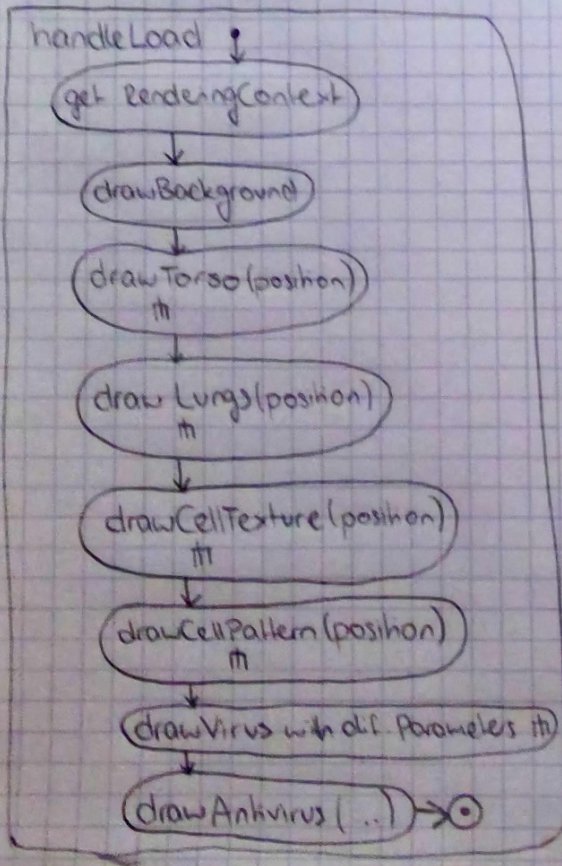 handleLoad
get RenderingContext
drawBackground
drawTorso(position)
drawLungs(position)
drawCellTexture(position)
drawCellPattern(position)
drawVirus with dif. Parameters
drawAntivirus(..)